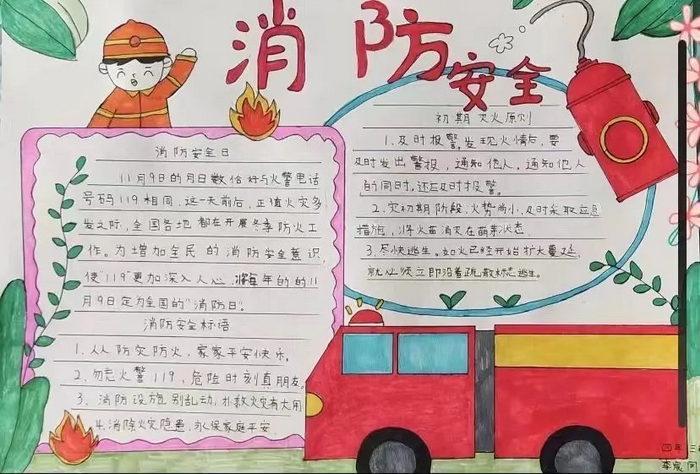 消防安全
消防安全日
11月9日的月日数恰好与火警电话
号码119相同,这一天前后,正值火灾多
发之际,全国各地都在开展冬季防火工
作。为增加全民的消防安全意识,
使"119"更加深入人心,将每年的的11
月9日定为全国的"消防日"。
消防安全标语
1、人人防灾防火,家家平安快乐。
2、勿忘火警119,危险时刻真朋友。
3、消防设施别乱动,扑救火灾有大用
4、消除火灾隐患,永保家庭平安
初期灭火原则
1、及时报警。发现火情后,要
及时发出警报,通知他人。通知他人
的同时,还应及时报警。
2、灾初期阶段,火势尚小,及时采取应急
措施,将火苗消灭在萌芽状态
3、尽快逃生。如火已经开始扩大蔓延,
就必须立即沿着疏散标志逃生。
四年
李